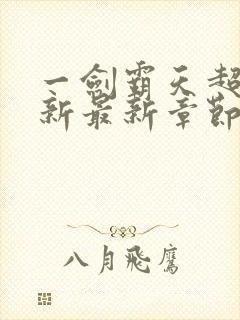 一剑霸天超
新最新章节
八月飛鷹